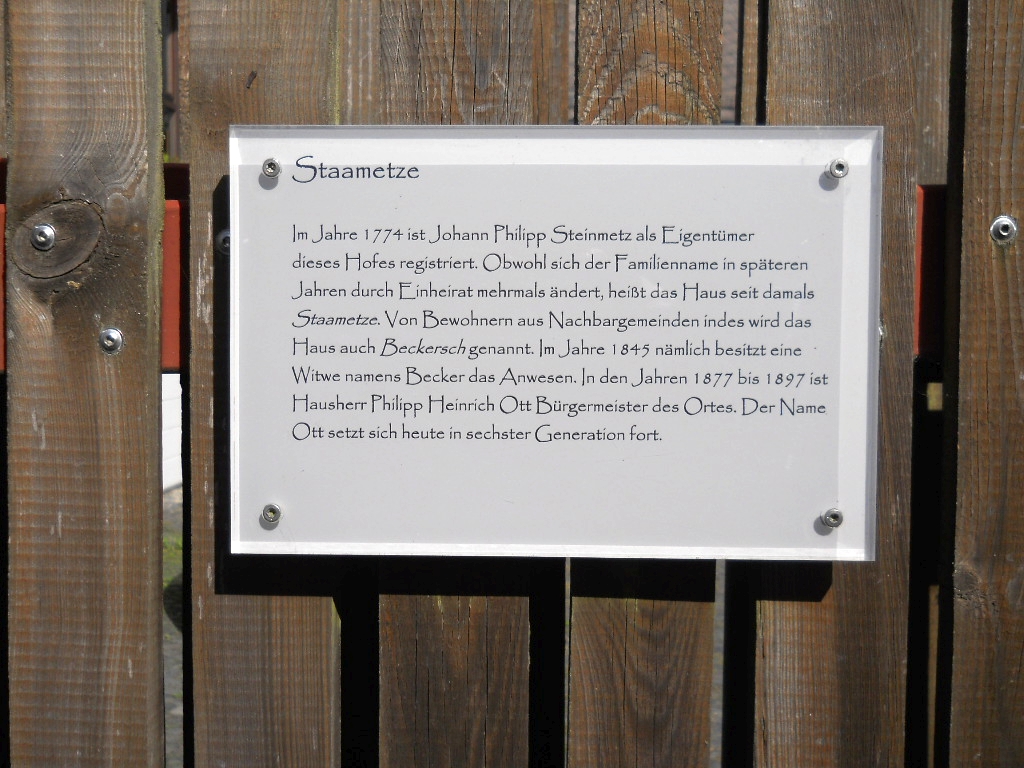 Staametze
Im Jahre 1774 ist Johann Philipp Steinmetz als Eigentümer
dieses Hofes registriert. Obwohl sich der Familienname in späteren
Jahren durch Einheirat mehrmals ändert, heißt das Haus seit damals
Staametze. Von Bewohnern aus Nachbargemeinden indes wird das
Haus auch Beckersch genannt. Im Jahre 1845 nämlich besitzt eine
Witwe namens Becker das Anwesen. In den Jahren 1877 bis 1897 ist
Hausherr Philipp Heinrich Ott Bürgermeister des Ortes. Der Name
Ott setzt sich heute in sechster Generation fort.